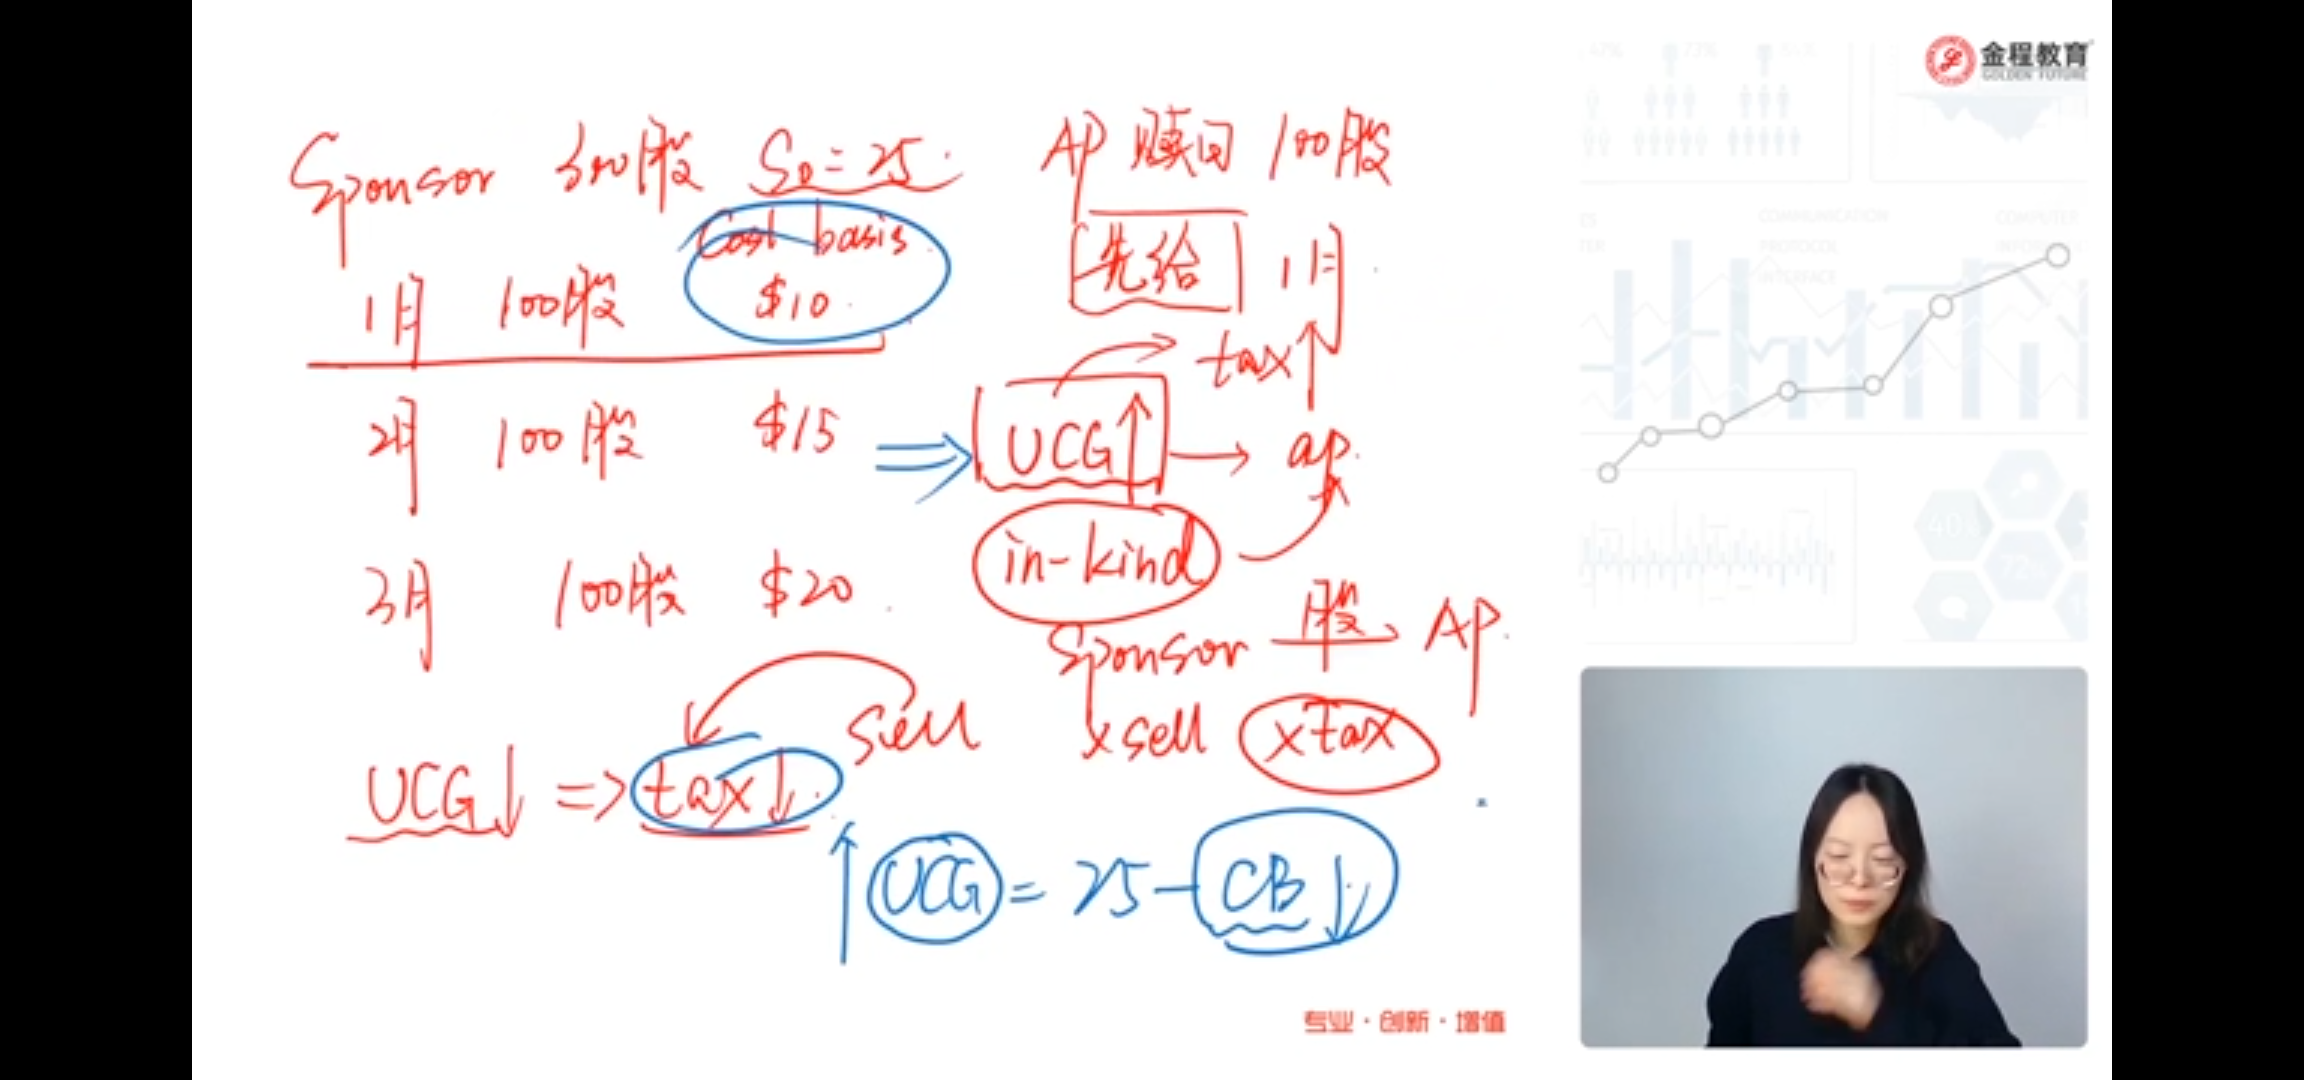 金程教育
GOLDEN FUTURE
Sponsor 300股 S0 = 25
AP 赎回 100股
Cost basis
先给 1月
1月 100股 $10
tax↑
2月 100股 $15
⇒ UCG↑ → ap
in-kind
3月 100股 $20
Sponsor 股→ AP
sell
x sell xtax
UCG↓ => tax↓
↑UCG = 25 - CB↓
专业·创新·增值
47%
77%
COMMUNICATION
PROTOCOL
INTERFACE
COMPUTER
40%
72%